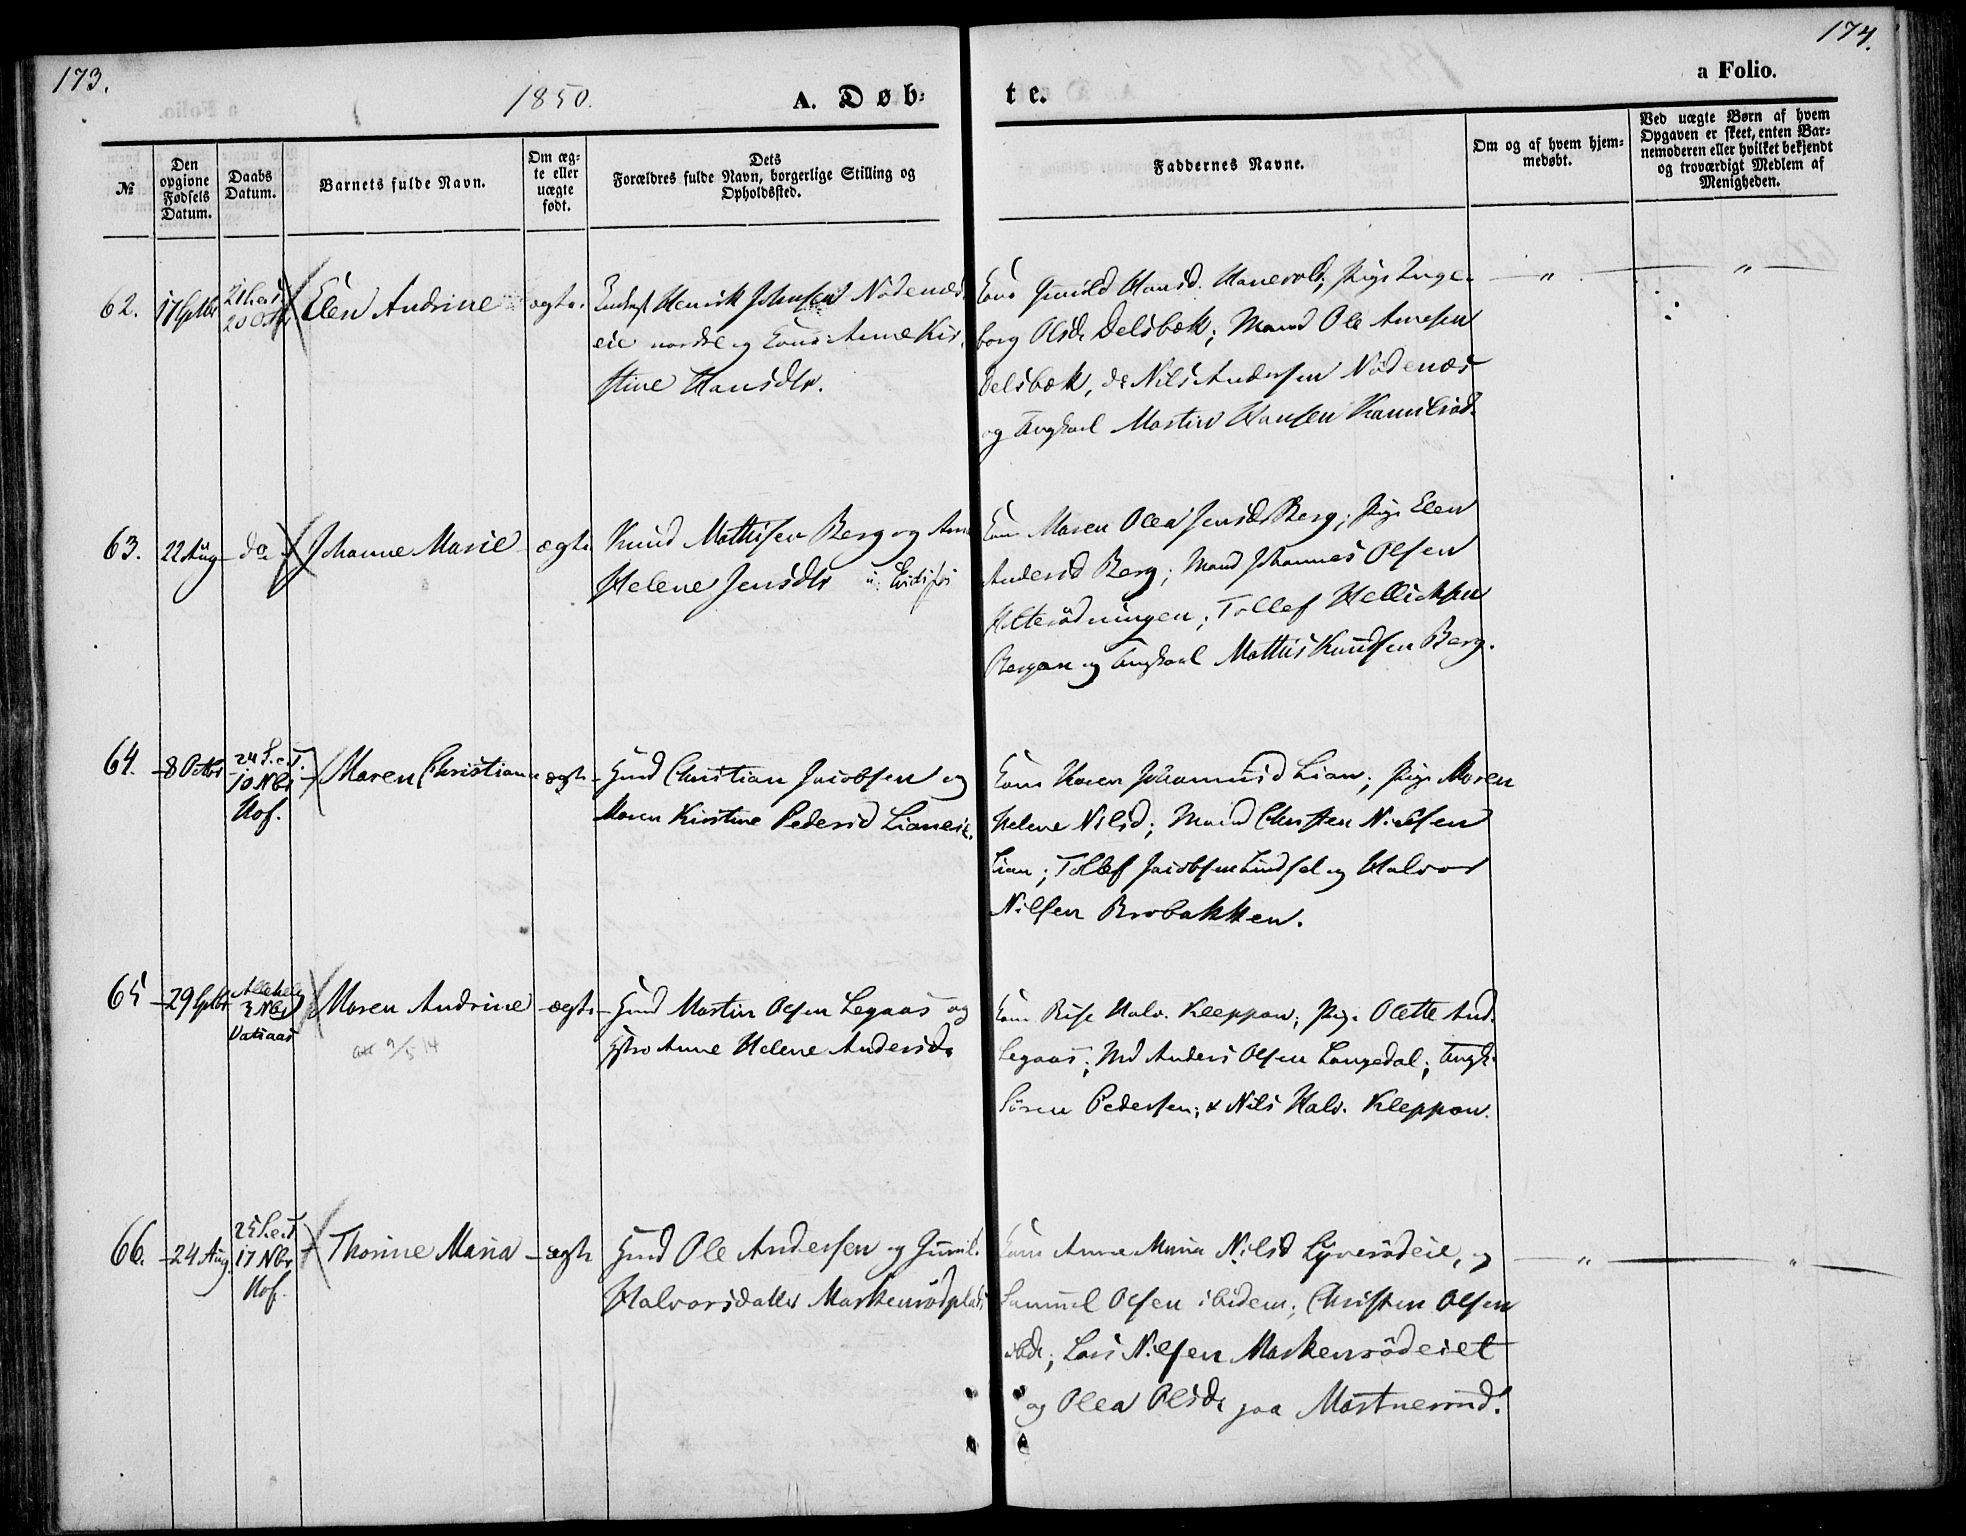 173.
1850.
A. Døb-
te.
174.
a Folio.
№
Den opgivne Fødsels Datum.
Daabs Datum.
Barnets fulde Navn.
Om ægte eller uægte født.
Dets
Forældres fulde Navn, borgerlige Stilling og
Opholdssted.
Faddernes Navne.
Om og af hvem hjem-
medøbt.
Ved uægte Børn af hvem
Opgaven er skeet, enten Bar-
nemoderen eller hvilket bekjendt
og troværdigt Medlem af
Menigheden.
62. 17 Septbr 20 Octbr Elen Andrine ægte. Henrik Johnsen Nödenæs
eie nordre og Kone Anne Kir-
stine Hansdtr.
Kone Gunild Hansd. Hanevold; Pige Inge-
borg Olsdr Delsbæk; Mand Ole Arnesen
Delsbæk, do Nils Andersen Nödenæs
og Ungkarl Martin Hansen
63. 22 Aug do Johanne Marie ægte Knud Mathisen Berg og Anne
Helene Jensdtr
Kone Maren Olea Jensdr Berg; Pige Elen
Andersd Berg; Mand Johannes Olsen
Holterödningen; Tollef Hellichsen
Bergan og Ungkarl Mathis Knudsen Berg.
64. 8 Octbr 24 S.e.T. 10 Nbr Hof. Maren Christiane ægte Hmd Christian Jacobsen og
Maren Kirstine Pedersd Lianeie.
Kone Karen Johannisd Lian; Pige Maren
Helene Nilsd; Mand Christen Nielsen
Lian; Tollef Jacobsen Lindsel og Halvor
Nilsen Brobakken.
65 29 Septbr Allehelg 3 Nbr Vasaas Maren Andrine ægte Hmd Martin Olsen Legaas og
Hstro Anne Helene Andersd.
att 9/5 14
Kone Halv. Kleppan; Pige Olette And.
Legaas; Md Anders Olsen Langedal; Ungk.
Sören Pedersen; & Nils Halv. Kleppan.
66. 24 Aug. 25 S.e.T. 17 Nbr Hof. Thorine Maria ægte Hmd Ole Andersen og Gunil.
Halvorsdatter Markenrödplads
Kone Anne Maria Nilsd Lyverödeie, og
Samuel Olsen ibidem; Christen Olsen
ibd; Lars Nilsen Markenrödeiet
og Olea Olsdr paa Mostuerud.